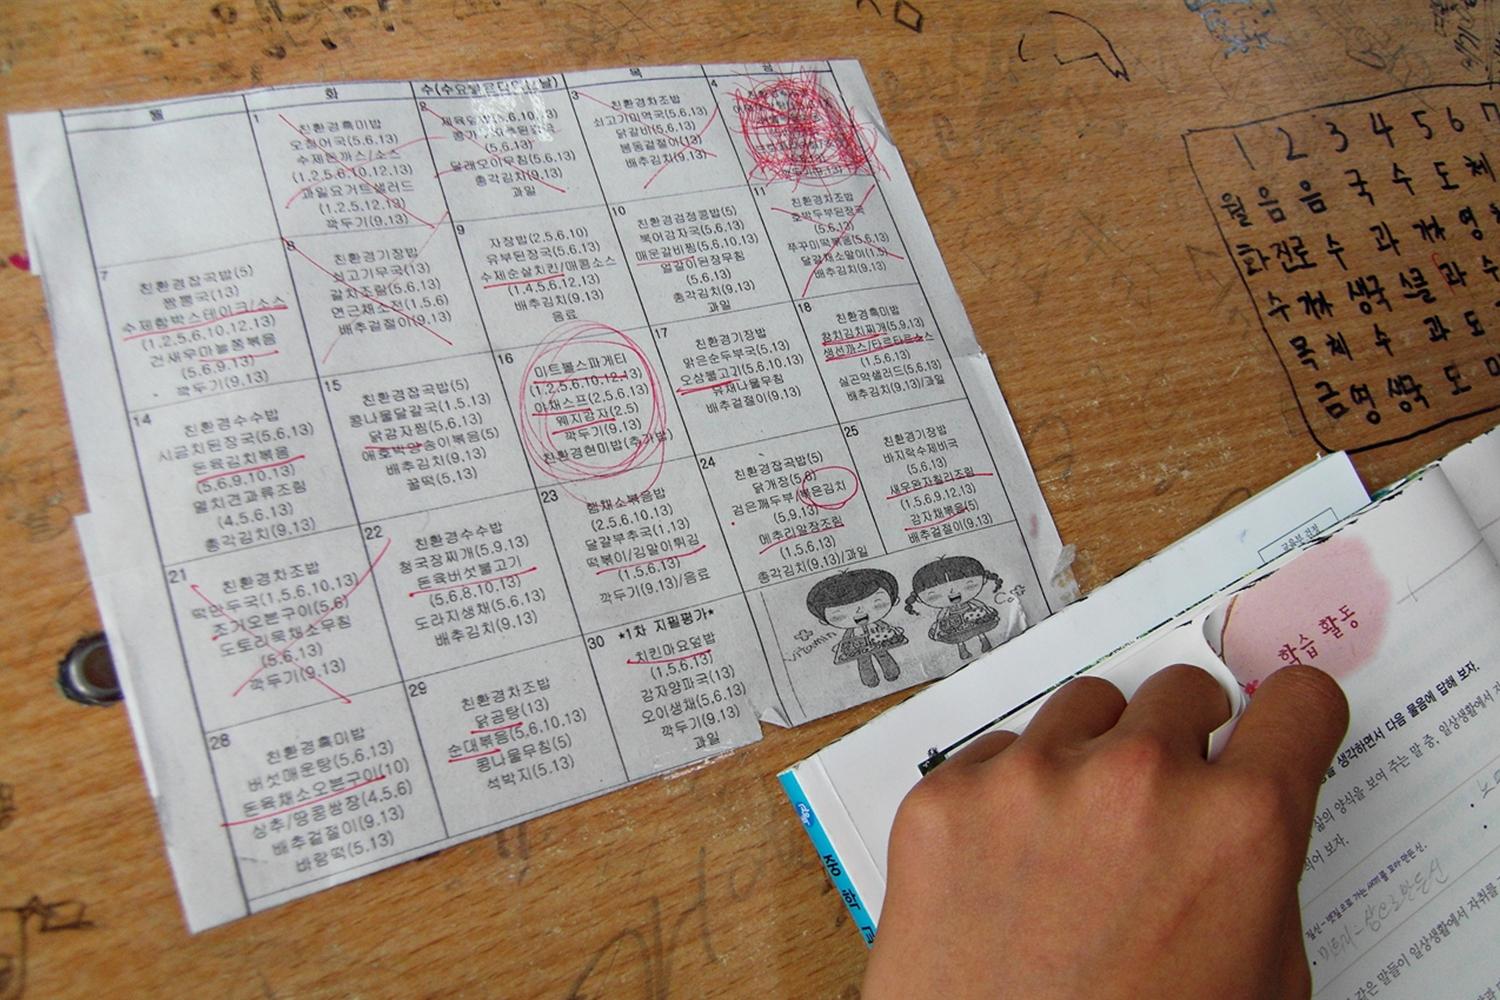 월
화
수(수요일은다먹는날)
목
금
1
친환경흑미밥
오징어국(5.6.13)
수제돈까스/소스
(1.2.5.6.10.12.13)
과일요거트샐러드
(1.2.5.12.13)
깍두기(9.13)
2
(5.6.13)
달래오이무침(5.6.13)
총각김치(9.13)
과일
3
친환경차조밥
쇠고기미역국(5.6.13)
닭갈비(5.6.13)
봄동겉절이(13)
배추김치(9.13)
4
7
친환경잡곡밥(5)
짬뽕국(13)
수제함박스테이크/소스
(1.2.5.6.10.12.13)
건새우마늘쫑볶음
(5.6.9.13)
깍두기(9.13)
8
친환경기장밥
쇠고기무국(13)
갈치조림(5.6.13)
연근채소전(1.5.6)
배추겉절이(9.13)
9
자장밥(2.5.6.10)
유부된장국(5.6.13)
수제순살치킨/매콤소스
(1.4.5.6.12.13)
배추김치(9.13)
음료
10
친환경검정콩밥(5)
북어감자국(5.6.13)
매운갈비찜(5.6.10.13)
얼갈이된장무침
(5.6.13)
총각김치(9.13)
과일
11
친환경차조밥
호박두부된장국
(5.6.13)
쭈꾸미떡볶음(5.6.13)
달걀채소말이(1.5)
배추김치(9.13)
14
친환경수수밥
시금치된장국(5.6.13)
돈육김치볶음
(5.6.9.10.13)
멸치견과류조림
(4.5.6.13)
총각김치(9.13)
15
친환경잡곡밥(5)
콩나물달걀국(1.5.13)
닭감자찜(5.6.13)
애호박양송이볶음(5)
배추김치(9.13)
꿀떡(5.13)
16
미트볼스파게티
(1.2.5.6.10.12.13)
야채스프(2.5.6.13)
웨지감자(2.5)
깍두기(9.13)
친환경현미밥(추가밥)
17
친환경기장밥
맑은순두부국(5.13)
오삼불고기(5.6.10.13)
유채나물무침
배추겉절이(9.13)
18
친환경흑미밥
참치김치찌개(5.9.13)
생선까스/타르타르소스
(1.5.6.13)
실곤약샐러드(5.6.13)
배추김치(9.13)/과일
21
친환경차조밥
떡만두국(1.5.6.10.13)
조기오븐구이(5.6)
도토리묵채소무침
(5.6.13)
깍두기(9.13)
22
친환경수수밥
청국장찌개(5.9.13)
돈육버섯불고기
(5.6.8.10.13)
도라지생채(5.6.13)
배추김치(9.13)
23
햄채소볶음밥
(2.5.6.10.13)
달걀부추국(1.13)
떡볶이/김말이튀김
(1.5.6.13)
깍두기(9.13)/음료
24
친환경잡곡밥(5)
닭개장(5.6)
검은깨두부/볶은김치
(5.9.13)
메추리알장조림
(1.5.6.13)
총각김치(9.13)/과일
25
친환경기장밥
바지락수제비국
(5.6.13)
새우완자칠리조림
(1.5.6.9.12.13)
감자채볶음(5)
배추겉절이(9.13)
28
친환경흑미밥
버섯매운탕(5.6.13)
돈육채소오븐구이(10)
상추/땅콩쌈장(4.5.6)
배추겉절이(9.13)
바람떡(5.13)
29
친환경차조밥
닭곰탕(13)
순대볶음(5.6.10.13)
콩나물무침(5)
석박지(5.13)
30
*1차 지필평가*
치킨마요덮밥
(1.5.6.13)
감자양파국(13)
오이생채(5.6.13)
깍두기(9.13)
과일
vitamin
1 2 3 4 5 6 7
월 음 음 국 수 도 체
화 진로 수 과
수
목 체 수 과 도
금 영 도
학습 활동
생각하면서 다음 물음에 답해 보자.
삶의 양식을 보여 주는 말 중, 일상생활에서
적어 보자.
같은 말들이 일상생활에서 자취를